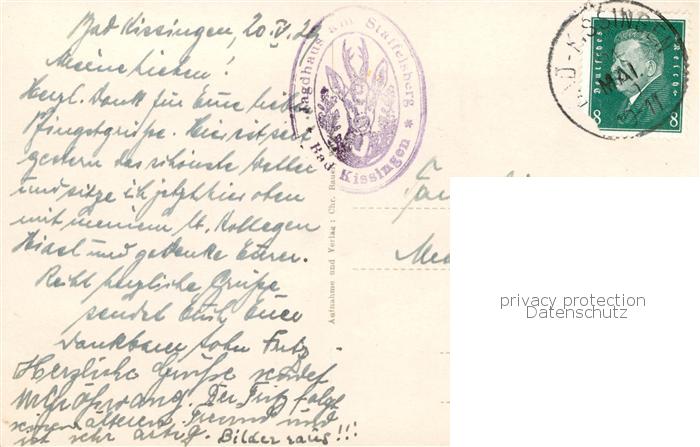 Bad Kissingen, 20. V. 29
Meine Lieben!
Herzl. Dank für Eure lieben
Pfingstgrüße. Hier ist seit
gestern das schönste Wetter
und sitze ich jetzt hier oben
mit meinem lb. Kollegen
und gedenke Eurer.
Recht herzliche Grüße
sendet Euch Euer
dankbarer Sohn Fritz.
Herzliche Grüße sendet
Der Fritz folgt
seinem älteren Freund und
ist sehr artig. Bilder raus!!!
Jagdhaus am Staffelsberg
* Bad Kissingen *
Aufnahme und Verlag: Chr.
BAD-KISSINGEN
MAI
Deutsches Reich
8 8
privacy protection
Datenschutz